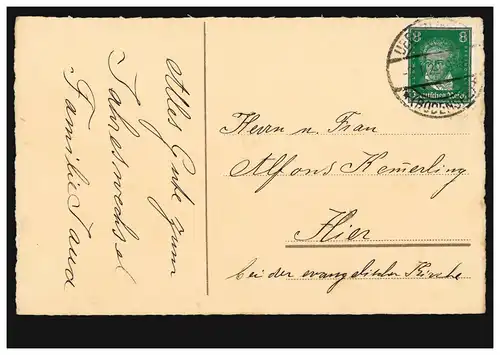 Alles Gute zum
Jahreswechsel
Familie Taud
8 8
Deutsches Reich
Herrn u. Frau
Alfons Kemerling
Hier
bei der evangelischen Kirche